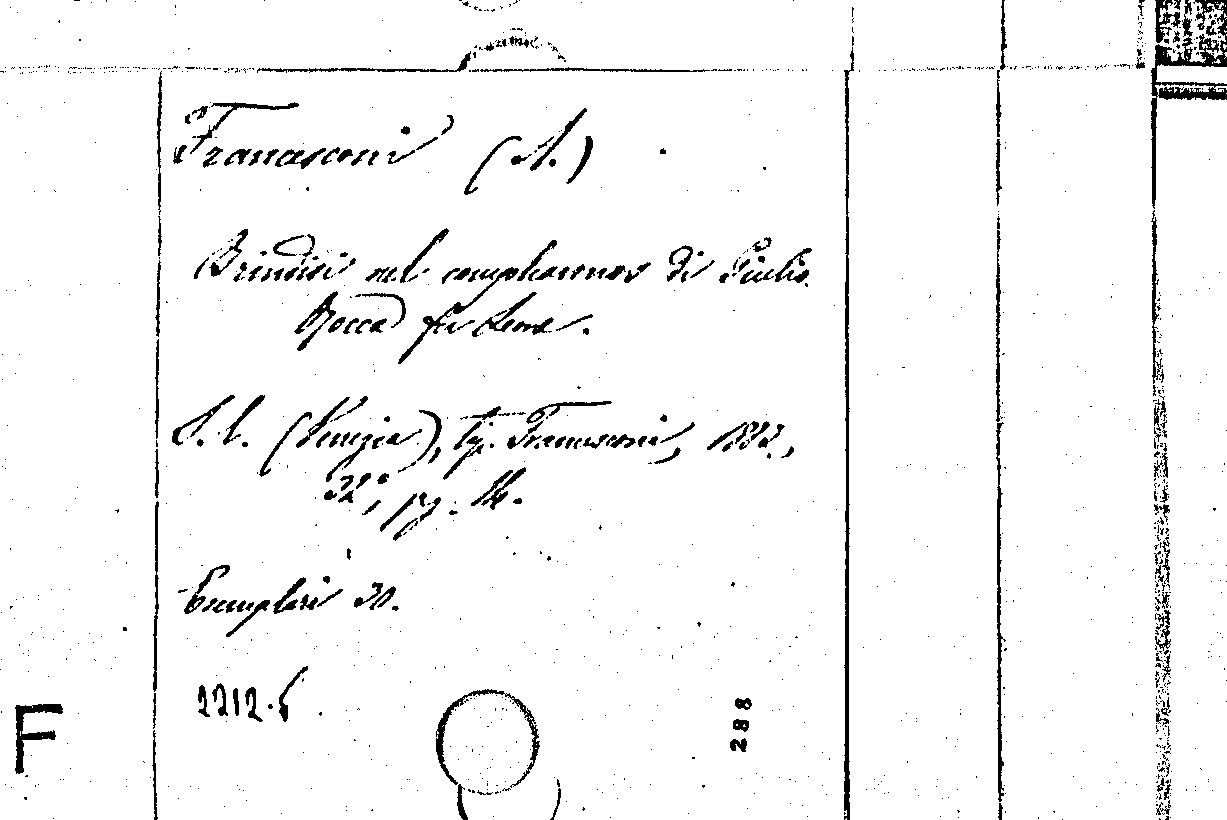 Francesconi (A.)
Brindisi nel compleannos di Giulio
Rocca fu Leone.
S. l. (Venezia), tip. Francesconi, 1882,
32°, pg. 14.
Esemplari 30.
2212.5
F
288